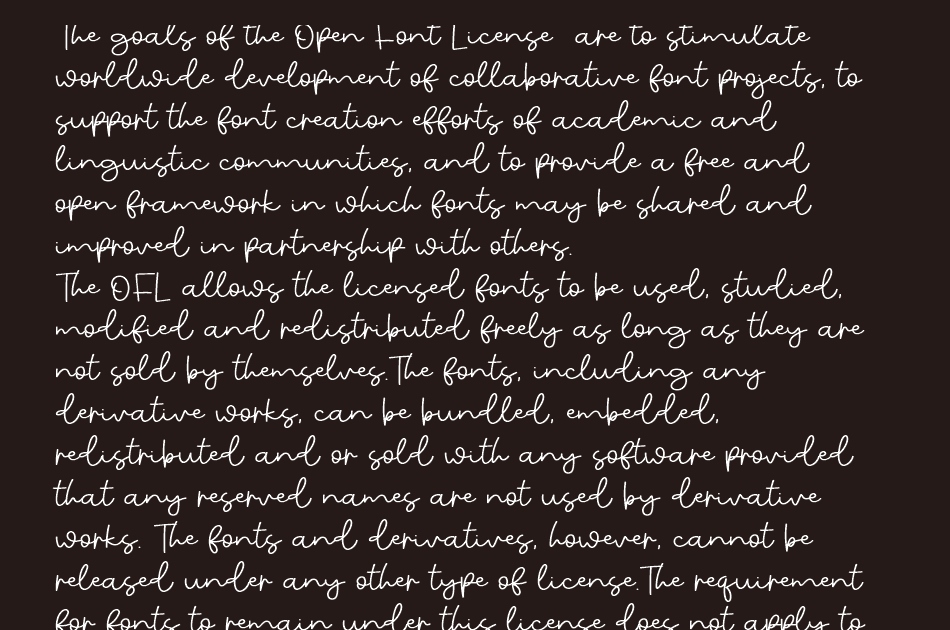 The goals of the Open Font License are to stimulate
worldwide development of collaborative font projects, to
support the font creation efforts of academic and
linguistic communities, and to provide a free and
open framework in which fonts may be shared and
improved in partnership with others.
The OFL allows the licensed fonts to be used, studied,
modified and redistributed freely as long as they are
not sold by themselves.The fonts, including any
derivative works, can be bundled, embedded,
redistributed and or sold with any software provided
that any reserved names are not used by derivative
works. The fonts and derivatives, however, cannot be
released under any other type of license.The requirement
for fonts to remain under this license does not apply to